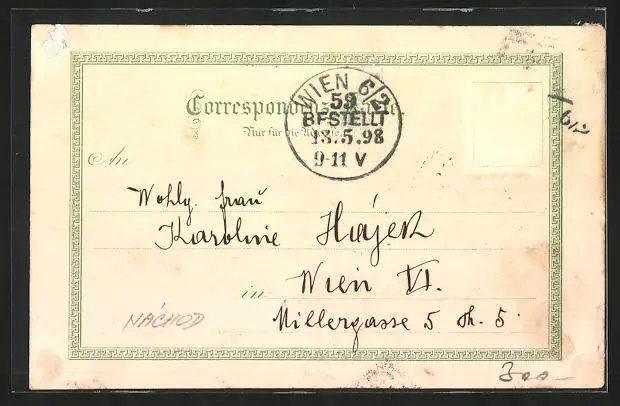 Correspondenz-Karte.
Nur für die Adresse.
WIEN 6/2
59
BESTELLT
13.5.98
9-11 V
6/2
An
Wohlg. frau
Karoline Hájek
in Wien VI.
Millergasse 5 th. 5.
NÁCHOD